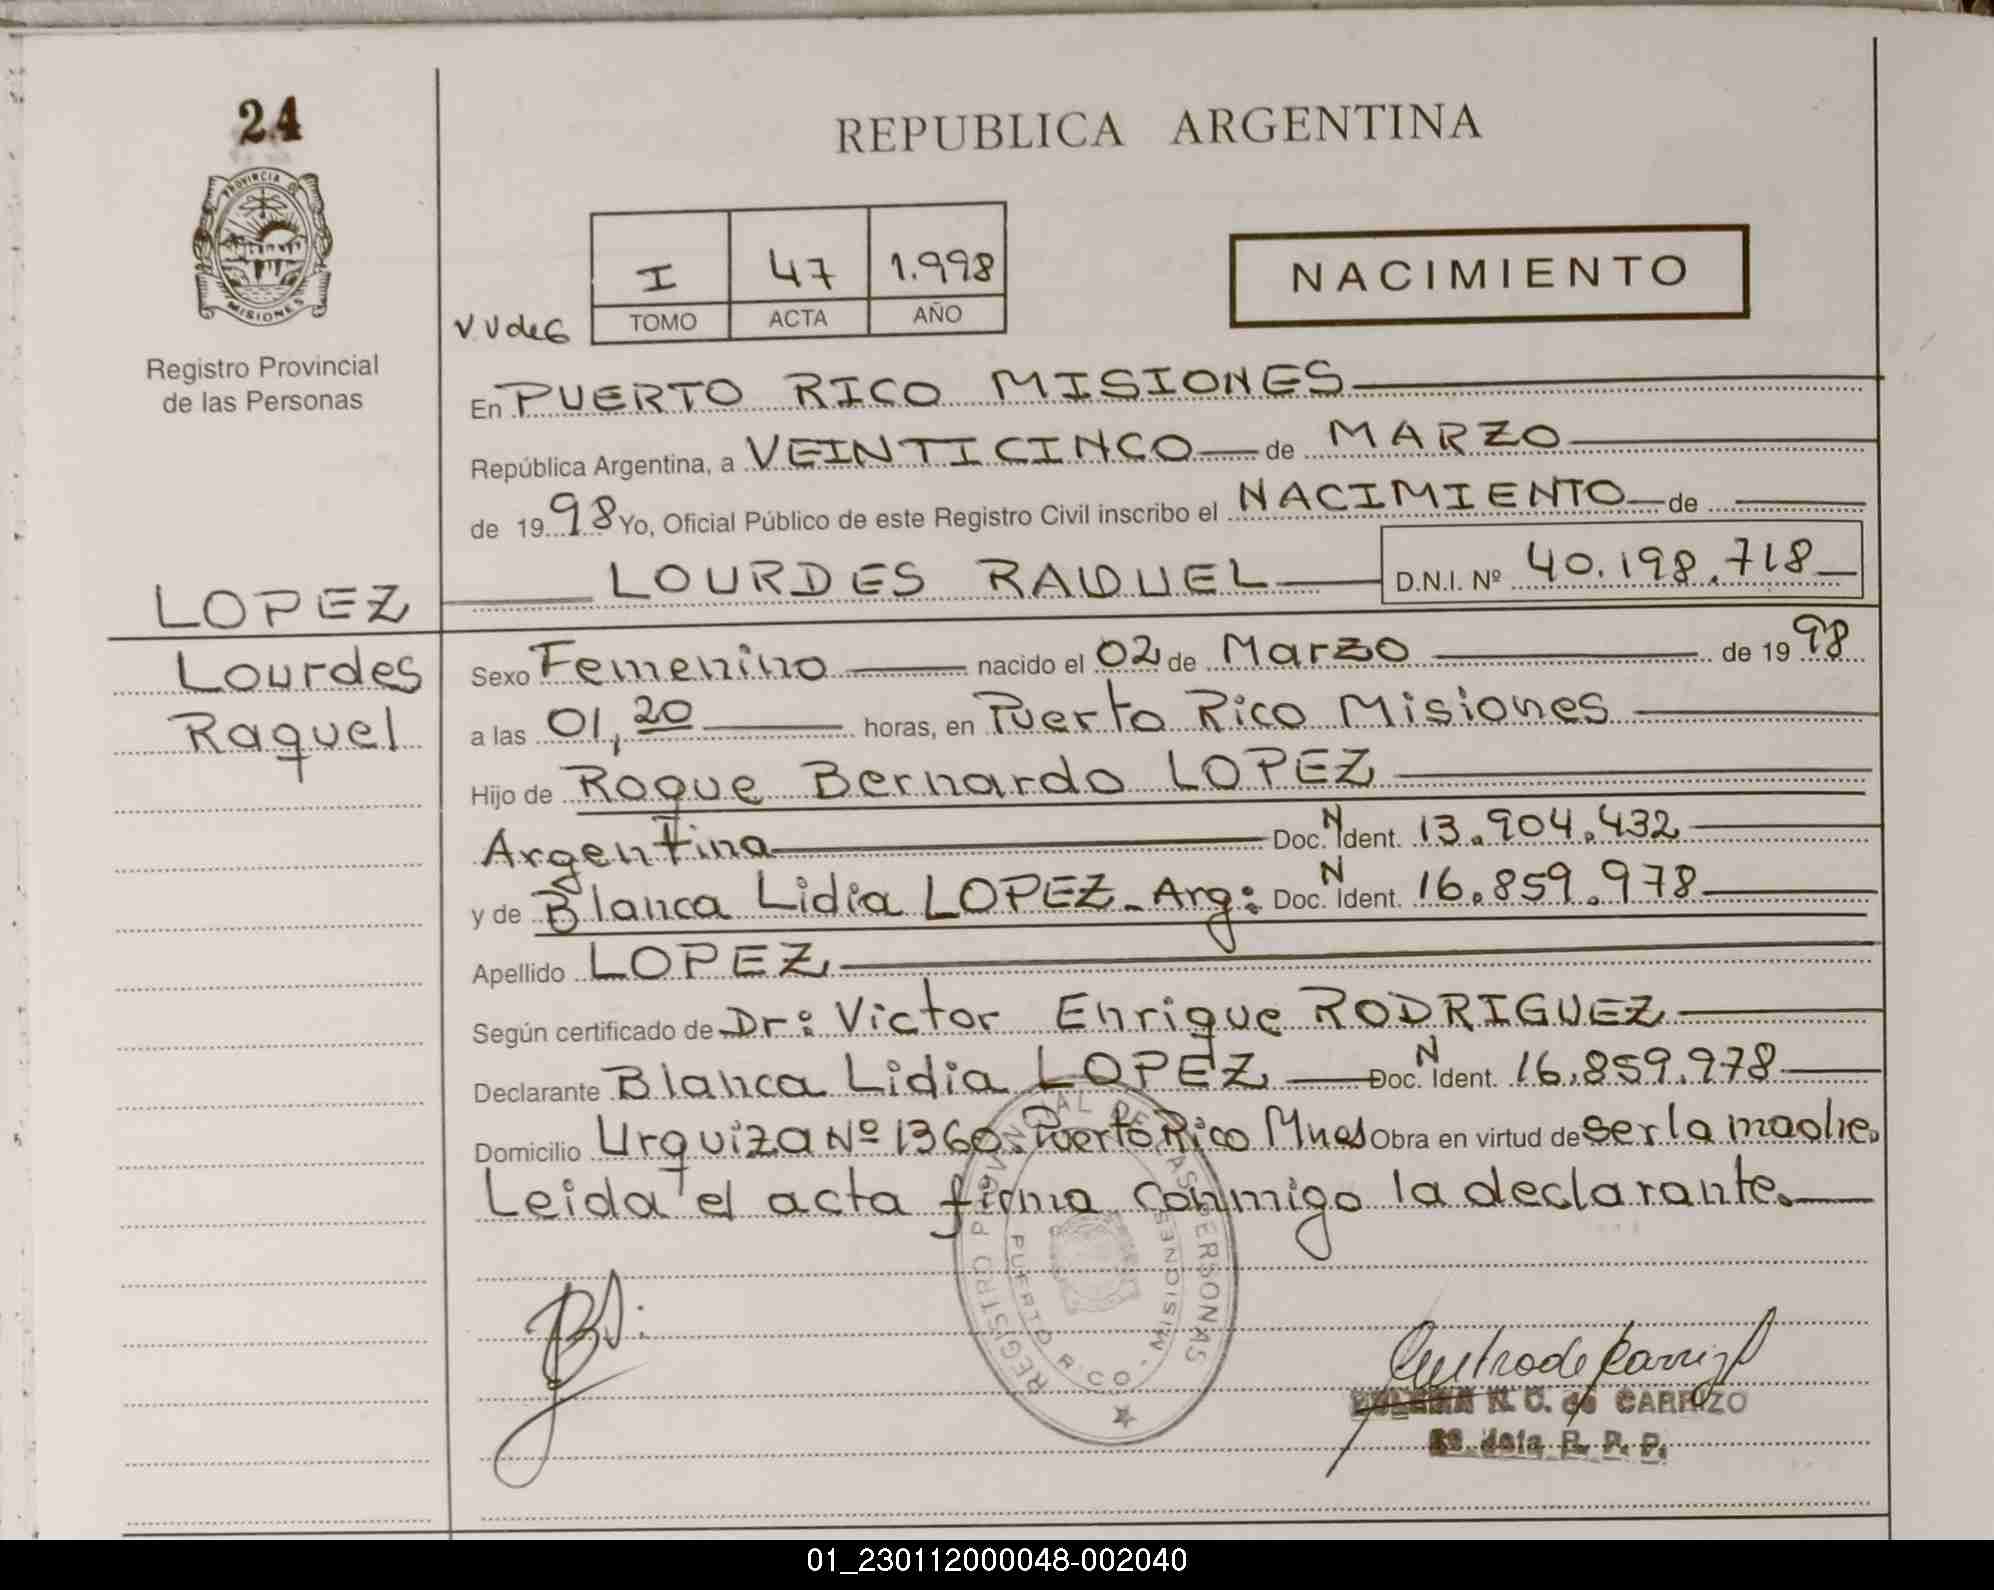 24
REPUBLICA ARGENTINA
PROVINCIA DE
MISIONES
Registro Provincial
de las Personas
I 47 1.998
TOMO ACTA AÑO
NACIMIENTO
En PUERTO RICO MISIONES
República Argentina, a VEINTICINCO de MARZO
de 1998 Yo, Oficial Público de este Registro Civil inscribo el NACIMIENTO de
LOPEZ LOURDES RAQUEL D.N.I. Nº 40.198.718
Lourdes
Raquel
Sexo Femenino nacido el 02 de Marzo de 1998
a las 01,20 horas, en Puerto Rico Misiones
Hijo de Roque Bernardo LOPEZ
Argentina Doc. N Ident. 13.904.432
y de Blanca Lidia LOPEZ - Arg: Doc. N Ident. 16.859.978
Apellido LOPEZ
Según certificado de Dr: Victor Enrique RODRIGUEZ
Declarante Blanca Lidia LOPEZ Doc. N Ident. 16.859.978
Domicilio Urquiza Nº 1360. Puerto Rico Mnes Obra en virtud de ser la madre.
Leida el acta firma conmigo la declarante.
REGISTRO PROVINCIAL DE LAS PERSONAS
PUERTO RICO - MISIONES
N. C. de CARRIZO
R. P. P.
01_230112000048-002040